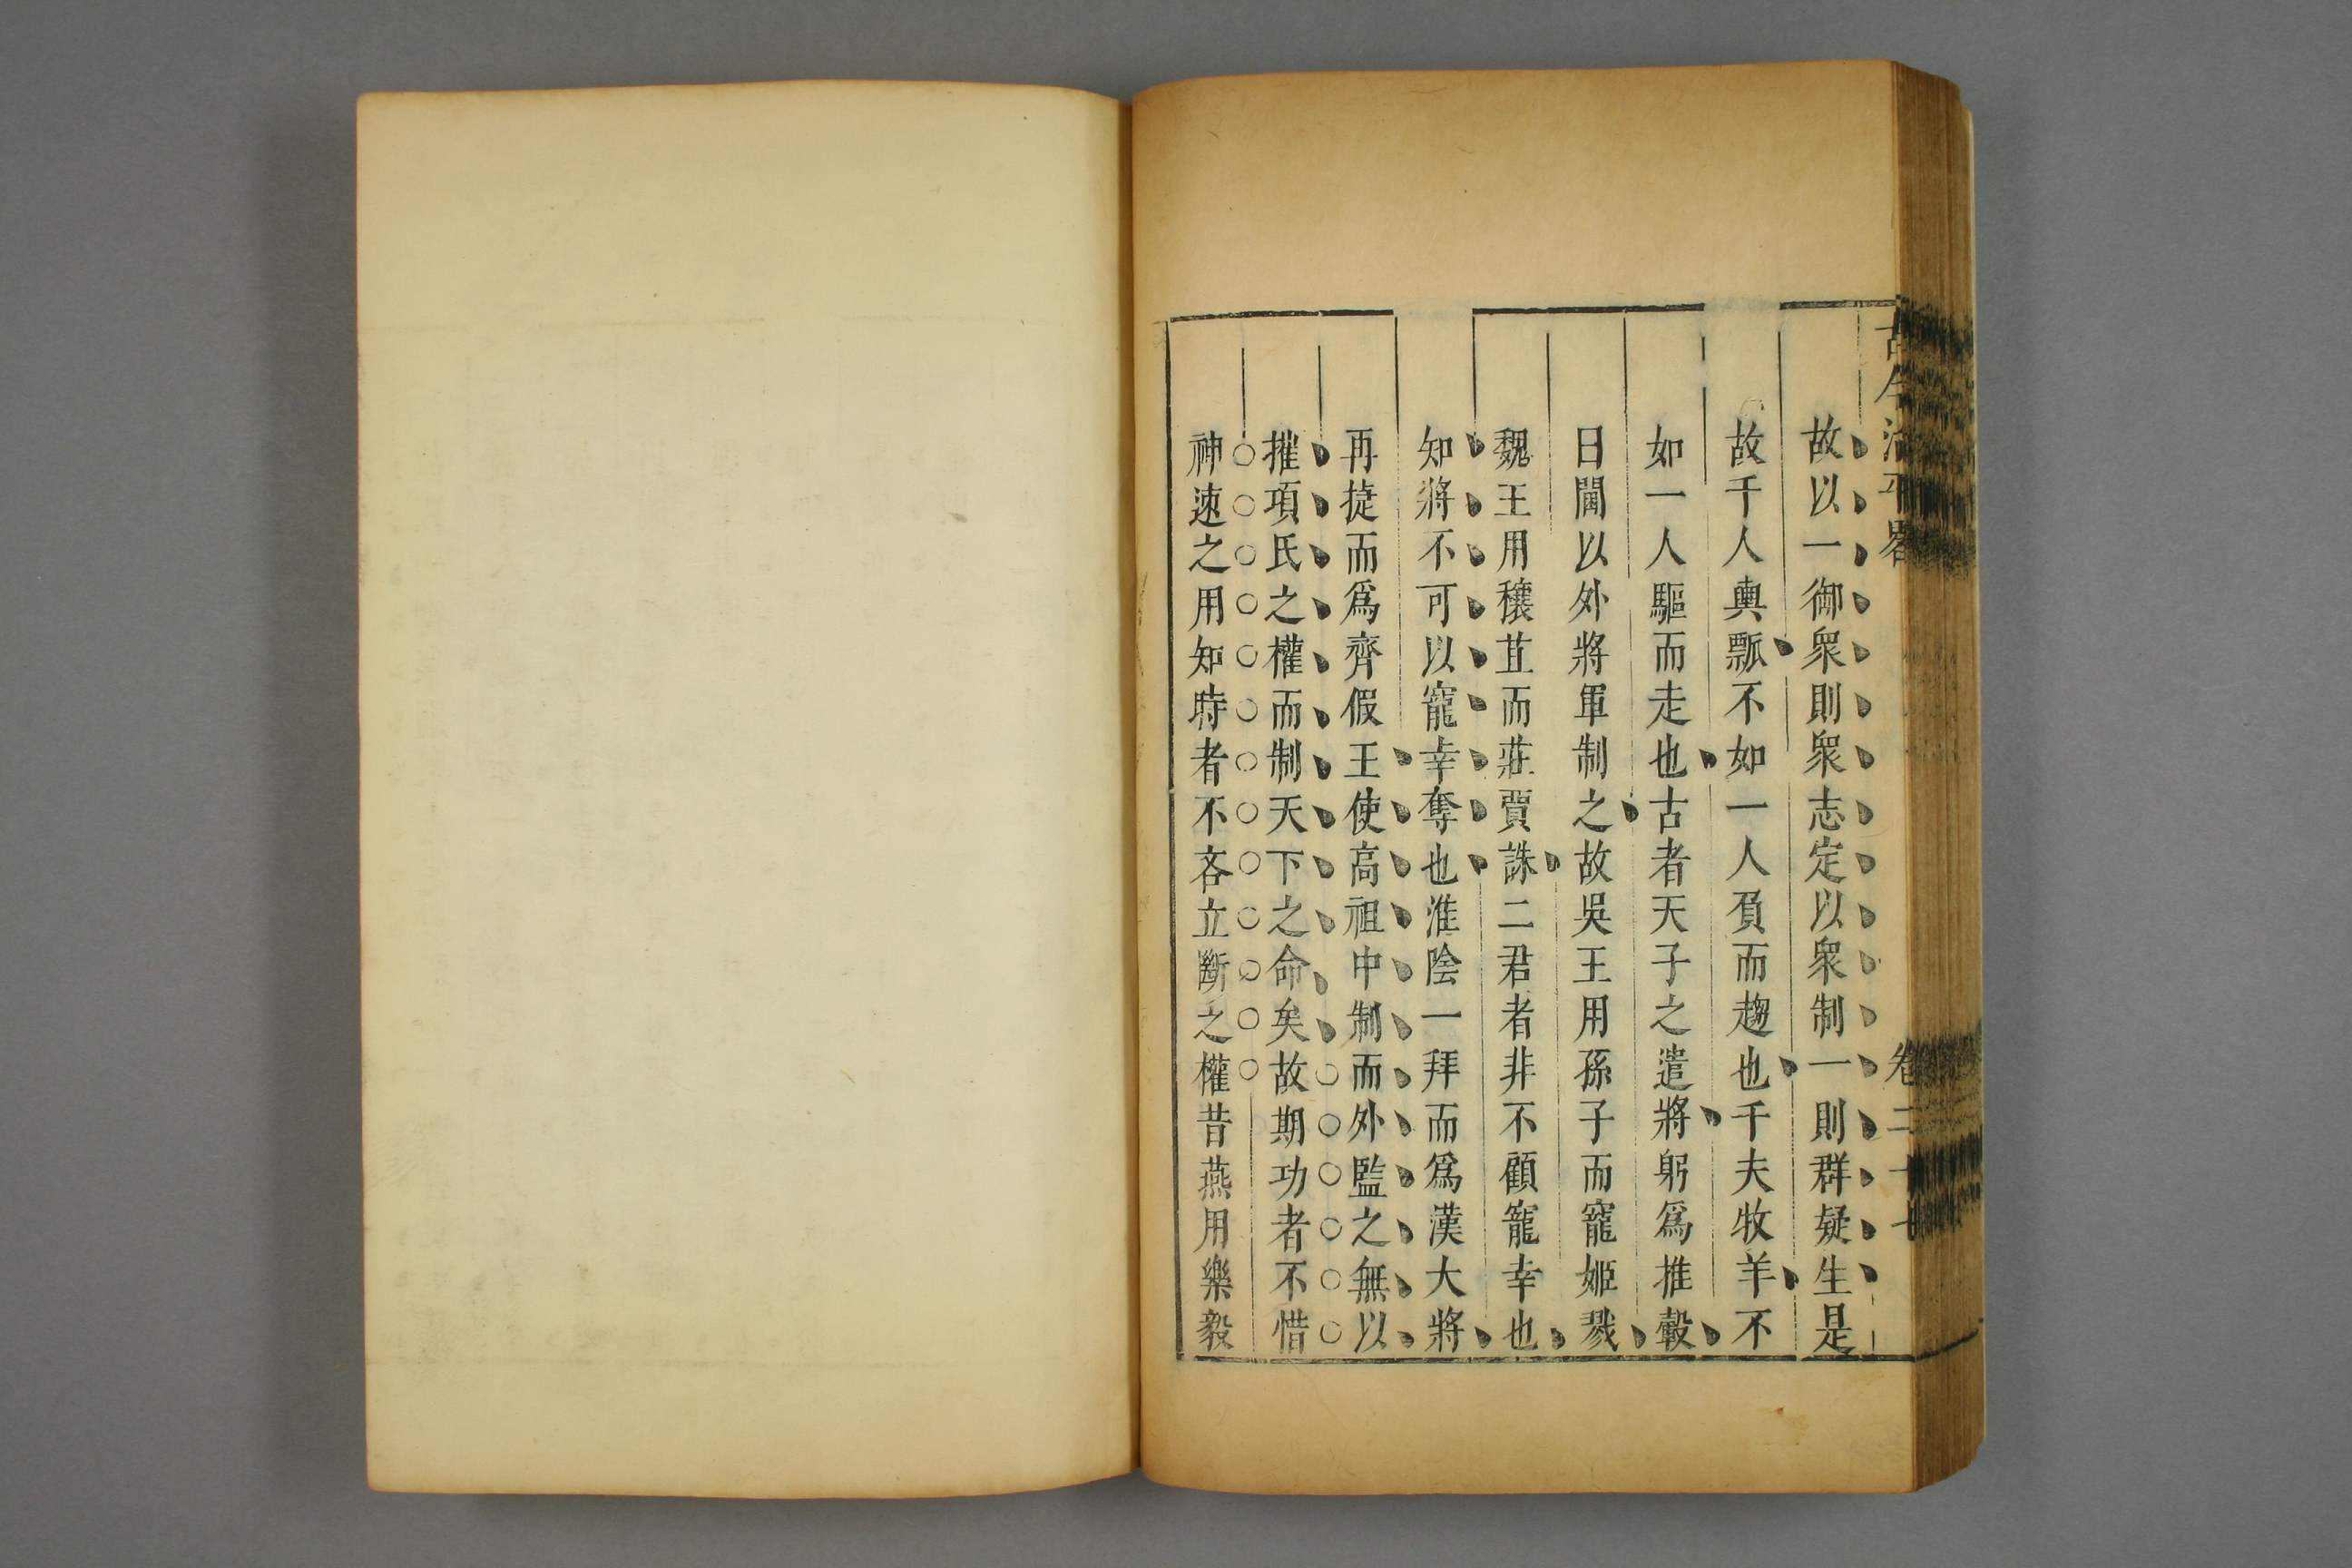 古今治平畧 卷二十七
故以一御衆則衆志定以衆制一則群疑生是
故千人輿瓢不如一人負而趨也千夫牧羊不
如一人驅而走也古者天子之遣將躬爲推轂
曰閫以外將軍制之故吳王用孫子而寵姬戮
魏王用穰苴而莊賈誅二君者非不顧寵幸也
知將不可以寵幸奪也淮陰一拜而爲漢大將
再捷而爲齊假王使高祖中制而外監之無以
摧項氏之權而制天下之命矣故期功者不惜
神速之用知時者不吝立斷之權昔燕用樂毅